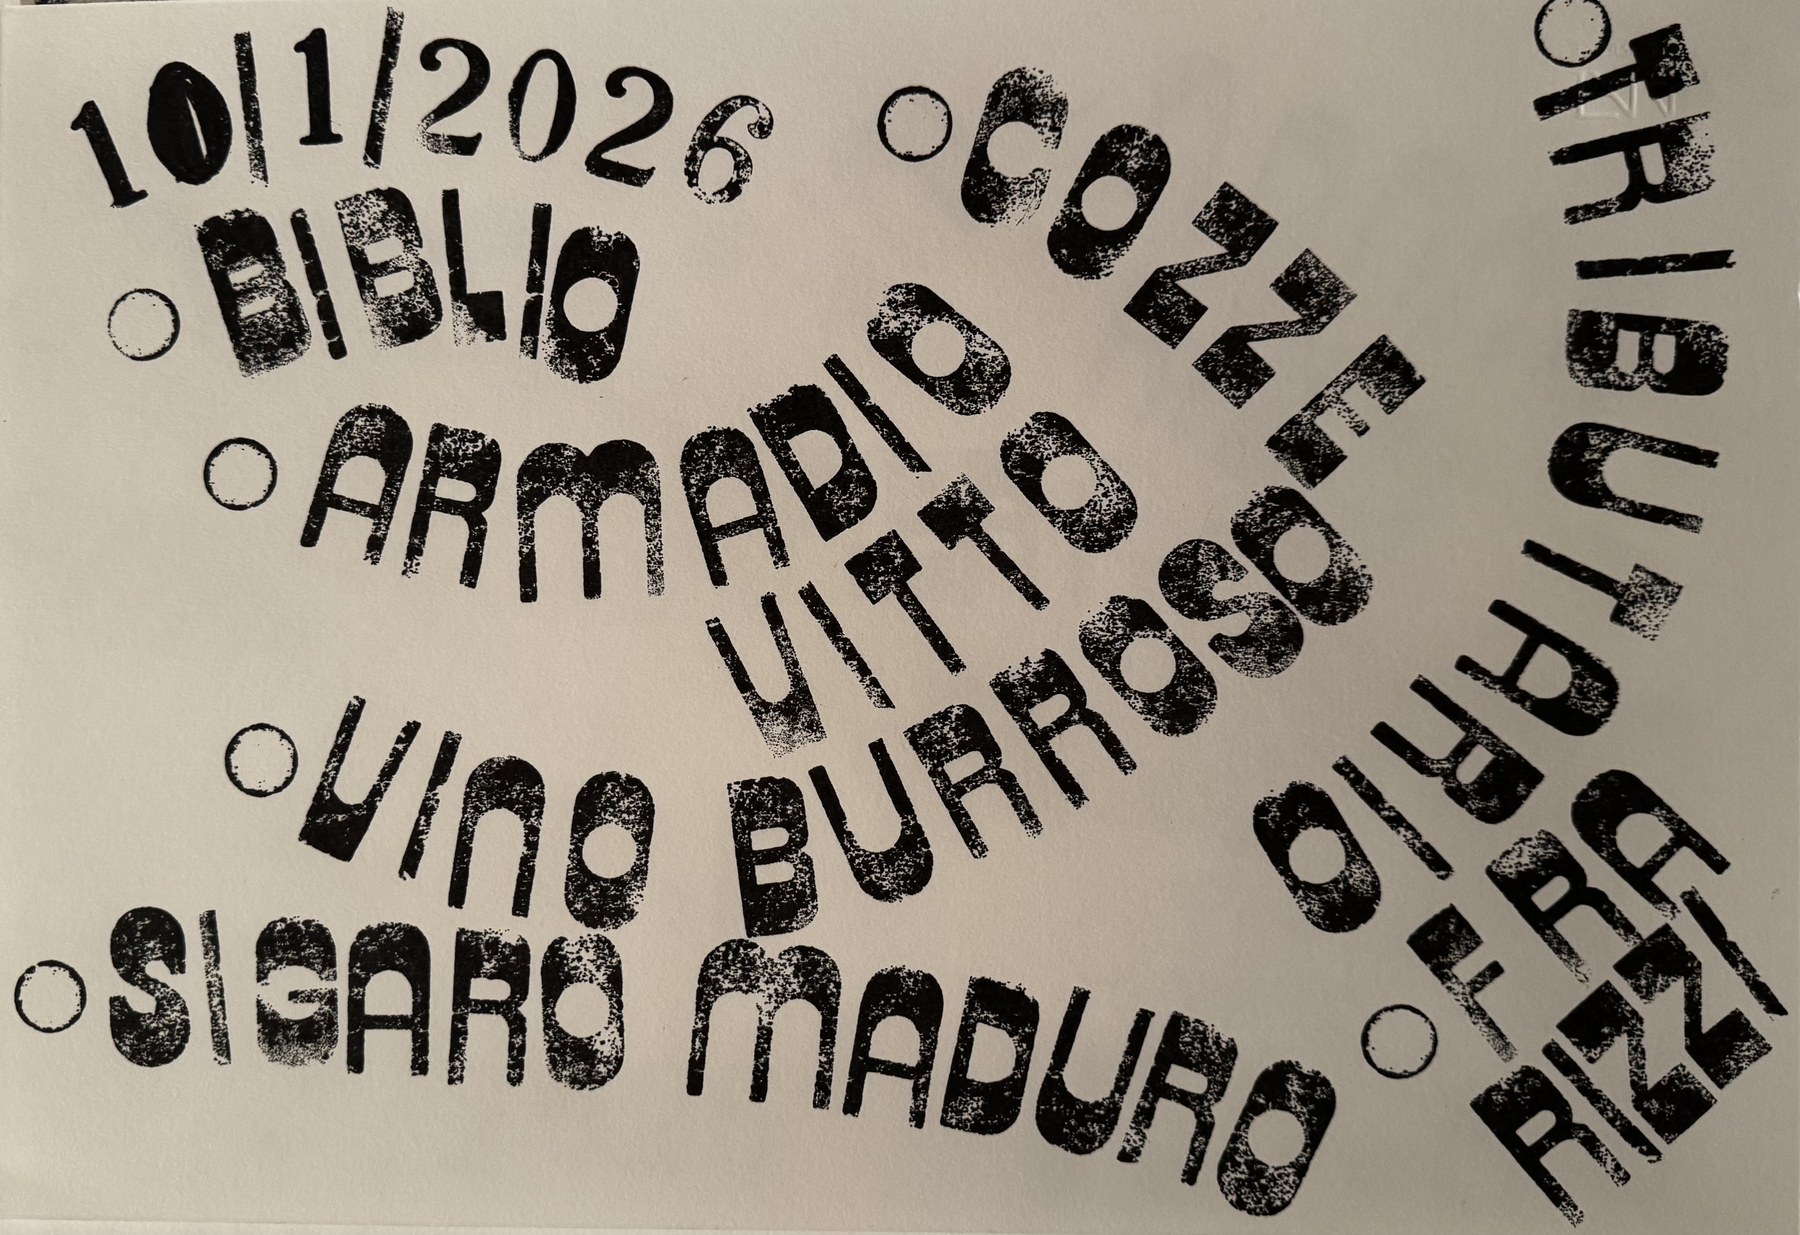 10/1/2026
○ BIBLIO
○ ARMADIO
VITTO
○ VINO BURROSO
○ SIGARO MADURO
○ COZZE
○ TRIBUTARIO
○ FRA
RIZZI